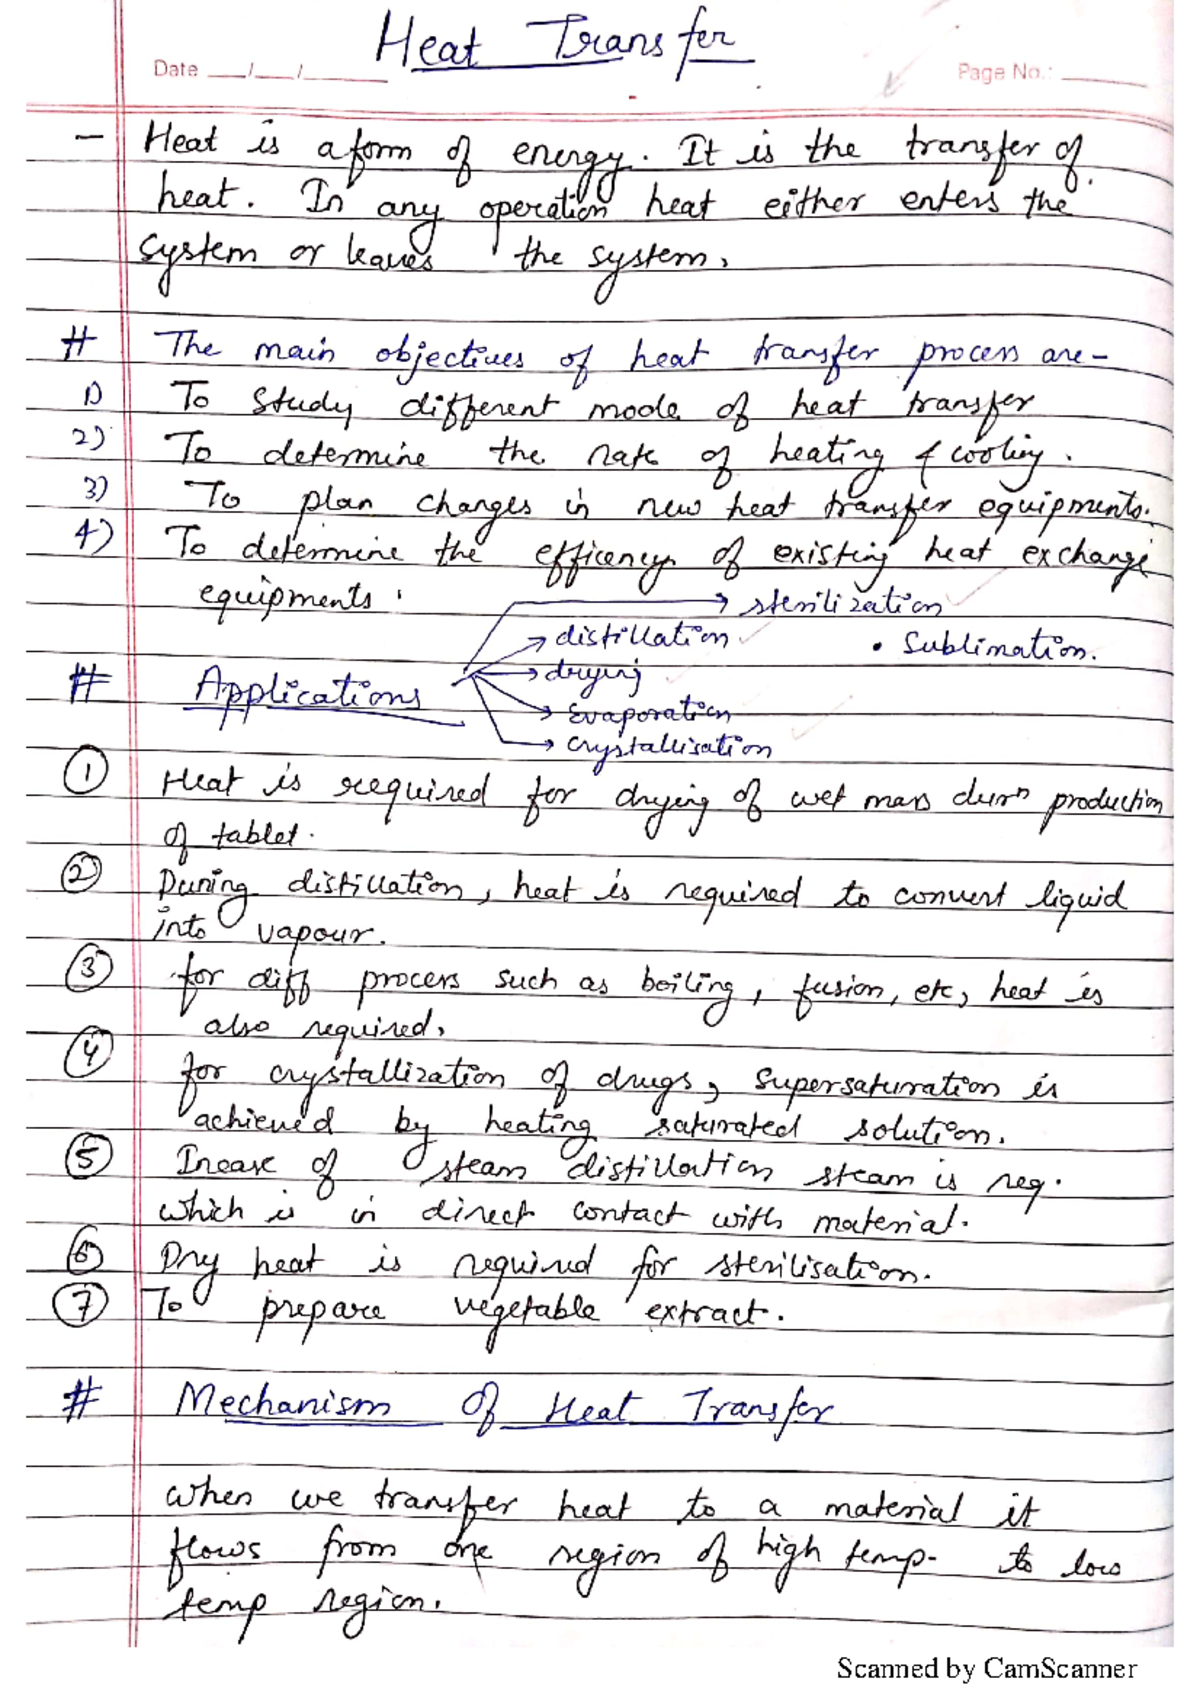 Heat Transfer
Date __/__/____
Page No.: ____
- Heat is a form of energy. It is the transfer of
heat. In any operation heat either enters the
system or leaves the system.
# The main objectives of heat transfer process are-
1) To study different mode of heat transfer
2) To determine the rate of heating & cooling.
3) To plan changes in new heat transfer equipments.
4) To determine the efficency of existing heat exchange
equipments.
→ sterilization
→ distillation
• Sublimation.
→ drying
# Applications
→ Evaporation
→ crystallisation
① Heat is required for drying of wet mass durn production
of tablet.
② During distillation, heat is required to convert liquid
into vapour.
③ for diff process such as boiling, fusion, etc, heat is
also required.
④ for crystallization of drugs, supersaturation is
achieved by heating saturated solution.
⑤ Incase of steam distillation steam is req.
which is in direct contact with material.
⑥ Dry heat is required for sterilisation.
⑦ To prepare vegetable extract.
# Mechanism Of Heat Transfer
when we transfer heat to a material it
flows from one region of high temp. to low
temp region.
Scanned by CamScanner